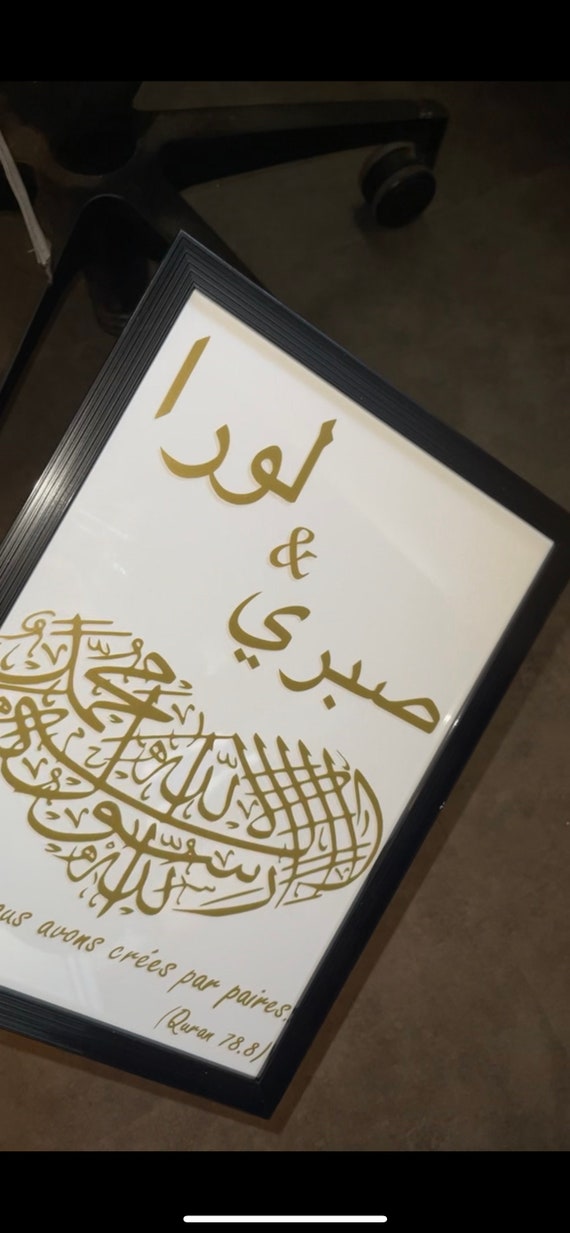 لورا
&
صبري
لا إله إلا الله محمد رسول الله
ous avons crées par paires
(Quran 78.8)